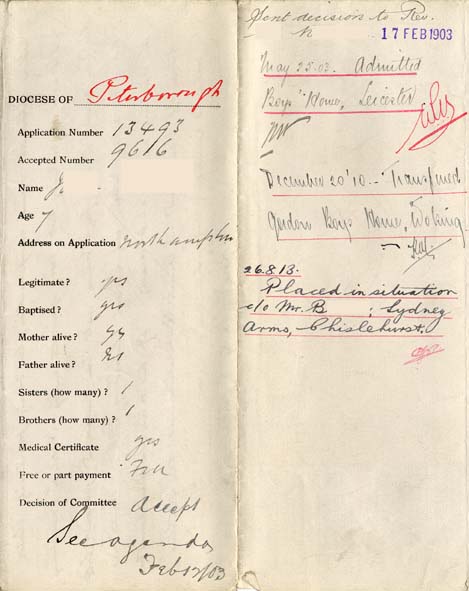 DIOCESE OF Peterborough
Application Number 13493
Accepted Number 9616
Name J
Age 7
Address on Application Northampton
Legitimate? yes
Baptised? yes
Mother alive? yes
Father alive?
Sisters (how many)? 1
Brothers (how many)? 1
Medical Certificate yes
Free or part payment Free
Decision of Committee Accept
See agenda
Feb 12/03
Sent decision to Rev.
17 FEB 1903
May 25.03. Admitted
Boys' Home, Leicester
December 20 '10 -- Transferred
Gordon Boys Home, Woking.
26.8.13.
Placed in situation
c/o Mr. B ; Sydney
Arms, Chislehurst.